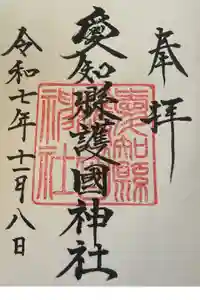 奉拝
愛知縣護國神社
愛知縣護國神社
令和七年十一月八日